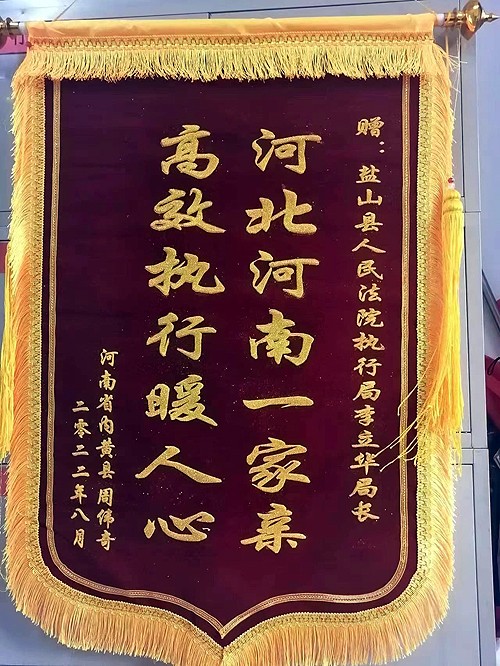 赠：盐山县人民法院执行局李立华局长
河北河南一家亲
高效执行暖人心
河南省内黄县周伟奇
二零二二年八月